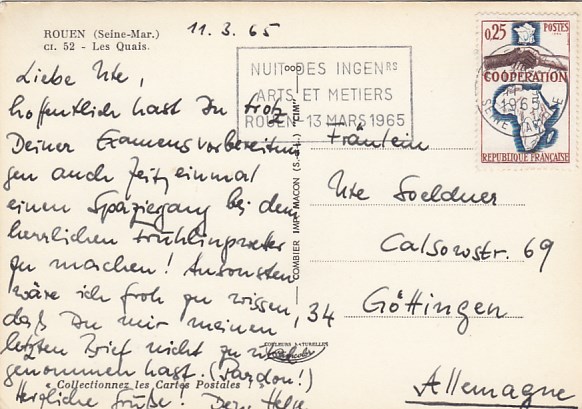 ROUEN (Seine-Mar.)
ct. 52 - Les Quais.
11.3.65
Liebe Ute,
hoffentlich hast Du trotz
Deiner Examensvorbereitun
gen auch Zeit, einmal
einen Spaziergang bei dem
herrlichen Frühlingswetter
zu machen! Ansonsten
wäre ich froh zu wissen,
daß Du mir meinen
letzten Brief nicht zu
genommen hast. (Pardon!)
Herzliche Grüße! Dein
NUIT DES INGENRS
ARTS ET METIERS
ROUEN - 13 MARS 1965
0,25 POSTES
COOPÉRATION
1965
SEINE
REPUBLIQUE FRANÇAISE
COMBIER IMP. MACON (S.-&-L.) "CIM"
Fräulein
Ute Soeldner
Calsowstr. 69
34 Göttingen
Allemagne
COULEURS NATURELLES
Collectionnez les Cartes Postales